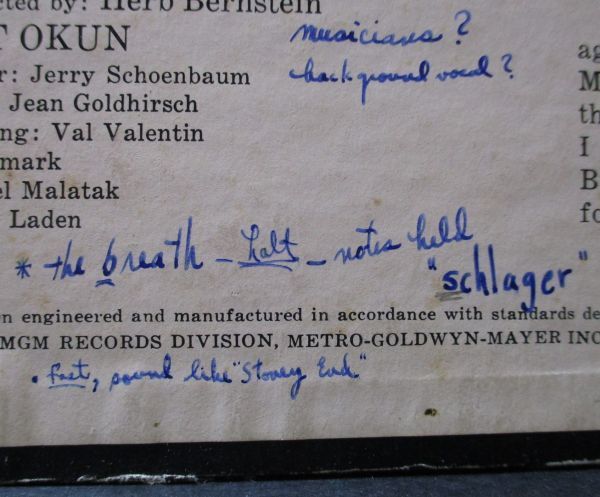 cted by: Herb Bernstein
T OKUN
musicians?
r: Jerry Schoenbaum
background vocal?
Jean Goldhirsch
ng: Val Valentin
mark
el Malatak
Laden
ag
M
th
I
B
fo
* the breath - halt - notes held
"schlager"
n engineered and manufactured in accordance with standards de
MGM RECORDS DIVISION, METRO-GOLDWYN-MAYER INC
. fast, sound like "Stoney End."